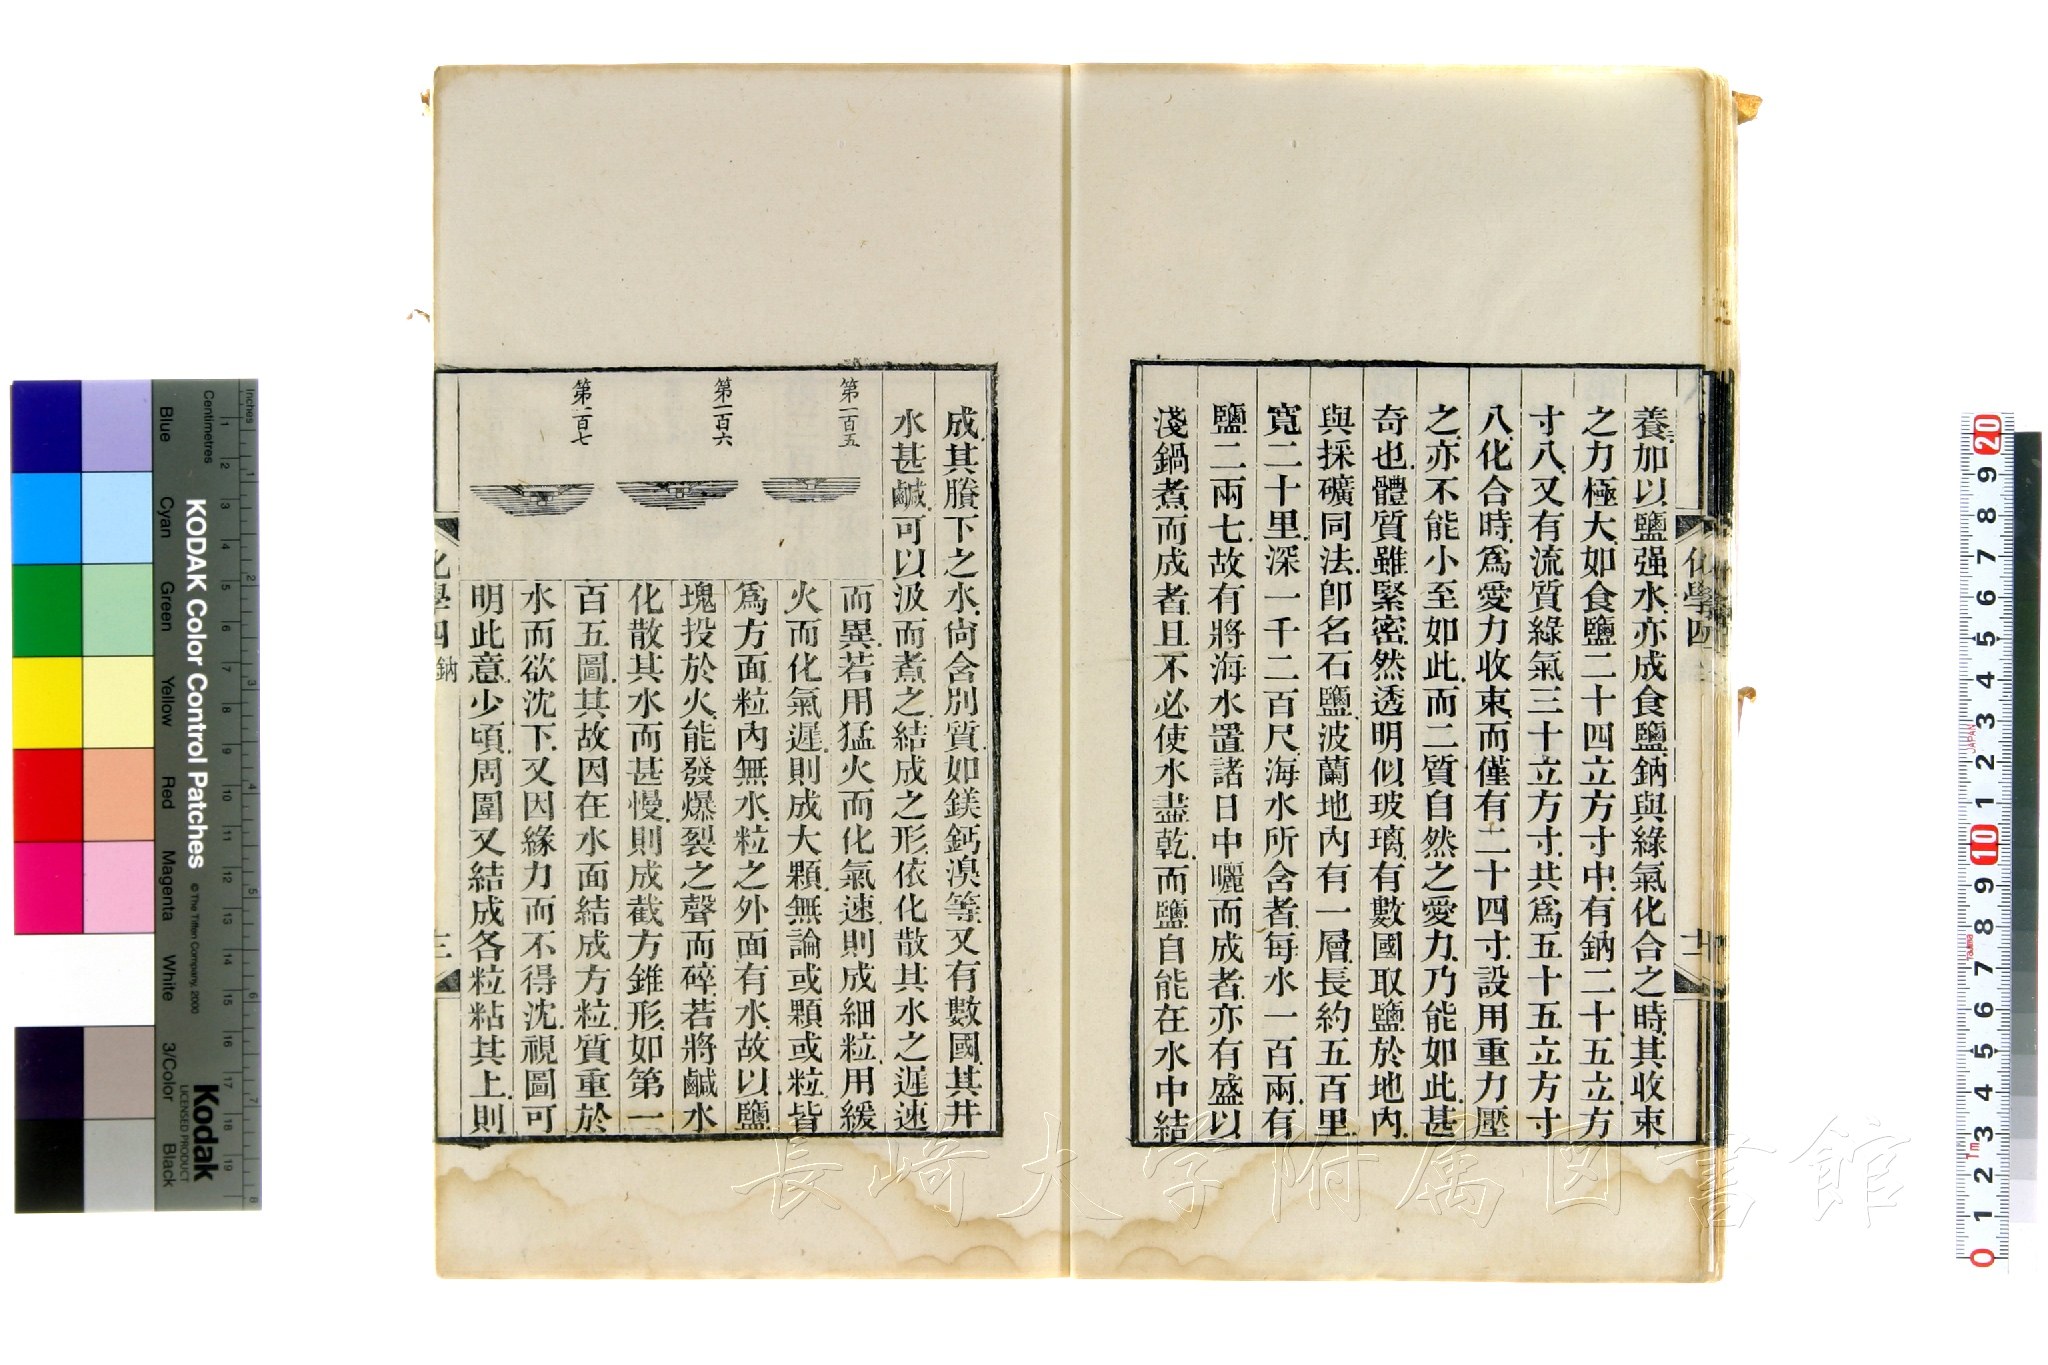 養加以鹽强水亦成食鹽鈉與綠氣化合之時其收束
之力極大如食鹽二十四立方寸中有鈉二十五立方
寸八又有流質綠氣三十立方寸共爲五十五立方寸
八化合時爲愛力收束而僅有二十四寸設用重力壓
之亦不能小至如此而二質自然之愛力乃能如此甚
奇也體質雖緊密然透明似玻璃有數國取鹽於地內
與採礦同法卽名石鹽波蘭地內有一層長約五百里
寬二十里深一千二百尺海水所含者每水一百兩有
鹽二兩七故有將海水置諸日中曬而成者亦有盛以
淺鍋煮而成者且不必使水盡乾而鹽自能在水中結
化學四
成其賸下之水尙含別質如鎂鈣溴等又有數國其井
水甚鹹可以汲而煮之結成之形依化散其水之遲速
第一百五
第一百六
第一百七
而異若用猛火而化氣速則成細粒用緩
火而化氣遲則成大顆無論或顆或粒皆
爲方面粒內無水粒之外面有水故以鹽
塊投於火能發爆裂之聲而碎若將鹹水
化散其水而甚慢則成截方錐形如第一
百五圖其故因在水面結成方粒質重於
水而欲沈下又因緣力而不得沈視圖可
明此意少頃周圍又結成各粒粘其上則
化學四 鈉
三
長崎大学附属図書館
KODAK Color Control Patches
©The Tiffen Company, 2000
Kodak
LICENSED PRODUCT
Inches
Centimetres
Blue
Cyan
Green
Yellow
Red
Magenta
White
3/Color
Black